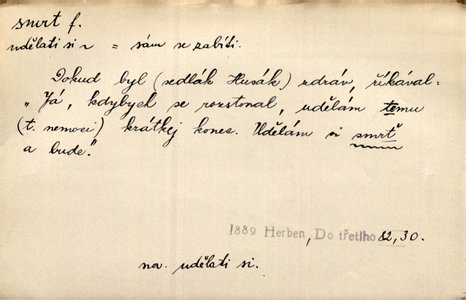 smrt f.
udělati si ~ = sám se zabíti.
Dokud byl (sedlák Husák) zdráv, říkával:
„Já, kdybych se rozstonal, udělám tomu
(t. nemoci) krátkej konec. Udělám si smrť
a bude."
1889 Herben, Do třetího 82, 30.
srv. udělati si.